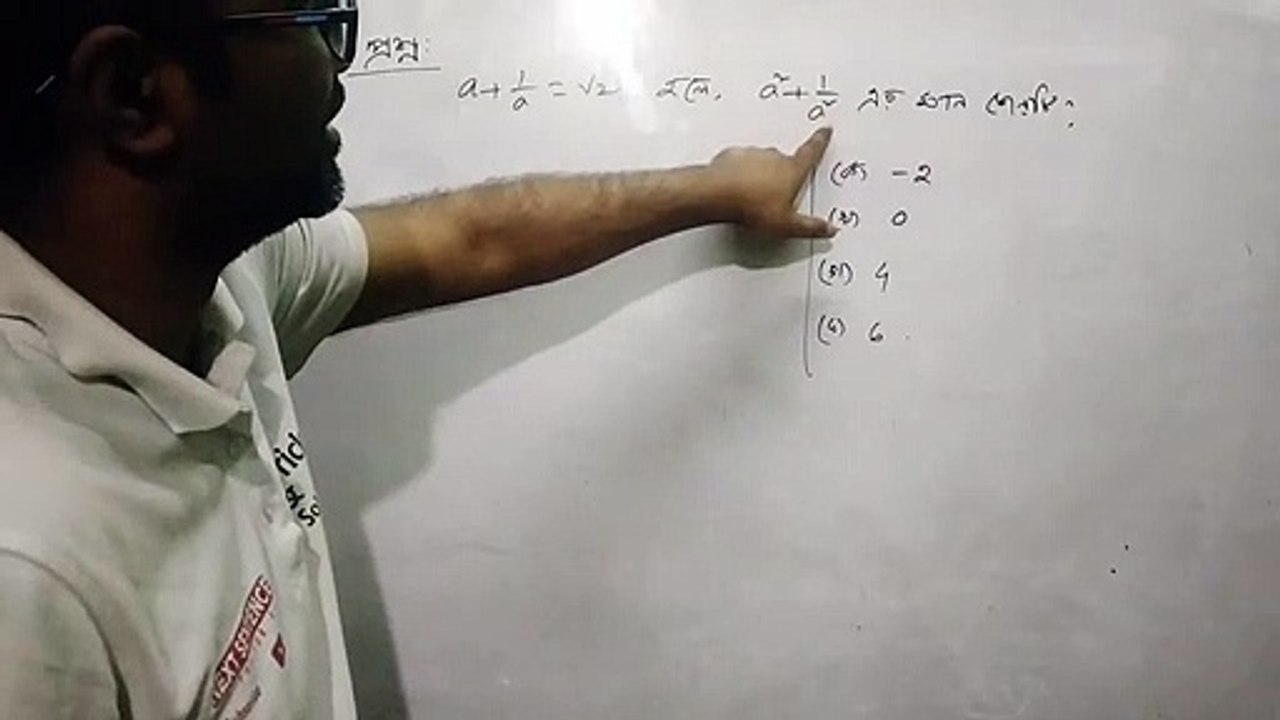 প্রশ্ন:
a + 1/a = √2 হলে, a² + 1/a² এর মান কোনটি?
(ক) -2
(খ) 0
(গ) 4
(ঘ) 6
NEXT SENTENCE